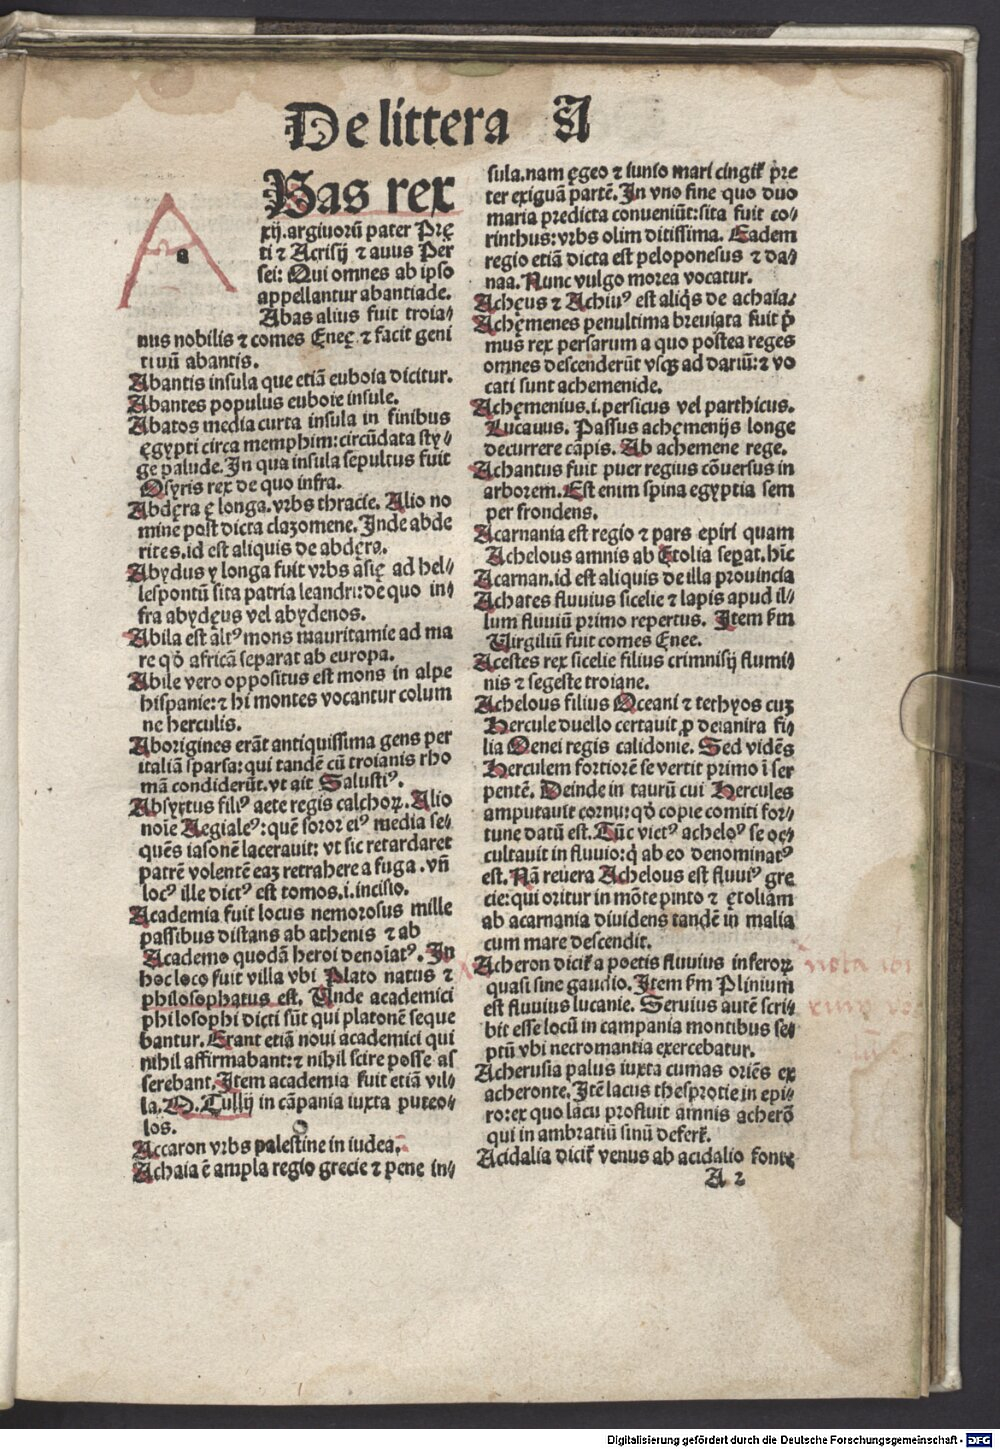 De littera A
Bas rex
a
xij. argiuorū pater Pre̜
ti ⁊ Acrisij ⁊ auus Per
sei: Qui omnes ab ipso
appellantur abantiade.
Abas alius fuit troia⸗
nus nobilis ⁊ comes Enee̜ ⁊ facit geni
tiuū abantis.
Abantis insula que etiā euboia dicitur.
Abantes populus euboie insule.
Abatos media curta insula in finibus
e̜gypti circa memphim: circūdata sty⸗
ge palude. In qua insula sepultus fuit
Osyris rex de quo infra.
Abde̜ra e̜ longa. vrbs thracie. Alio no
mine post dicta clazomene. Inde abde
rites. id est aliquis de abde̜ra.
Abydus y longa fuit vrbs āsie̜ ad hel⸗
lespontū sita patria leandri: de quo in⸗
fra abyde̜us vel abydenos.
Abila est altꝰ mons mauritamie ad ma
re qđ africā separat ab europa.
Abile vero oppositus est mons in alpe
hispanie: ⁊ hi montes vocantur colum
ne herculis.
Aborigines erāt antiquissima gens per
italiā sparsa: qui tandē cū troianis rho
mā condiderūt. vt ait Salustiꝰ.
Absyrtus filiꝰ aete regis calchoꝝ. Alio
noīe Aegialeꝰ: quē soror eiꝰ media se⸗
quēs iasonē lacerauit: vt sic retardaret
patrē volentē eaꝫ retrahere a fuga. vn̄
locꝰ ille dictꝰ est tomos. i. incisio.
Academia fuit locus nemorosus mille
passibus distans ab athenis ⁊ ab
Academo quodā heroi denoīatꝰ. In
hoc loco fuit villa vbi Plato natus ⁊
philosophatus est. Unde academici
philosophi dicti sūt qui platonē seque
bantur. Erant etiā noui academici qui
nihil affirmabant: ⁊ nihil scire posse as
serebant. Item academia fuit etiā vil⸗
la. M. Tullij in cāpania iuxta puteo⸗
los.
Accaron vrbs palestine in iudea.
Achaia ē ampla regio grecie ⁊ pene in⸗
sula. nam e̜geo ⁊ iunio mari cingit᷑ pre
ter exiguā partē. In vno fine quo duo
maria predicta conueniūt: sita fuit co⸗
rinthus: vrbs olim ditissima. Eadem
regio etiā dicta est peloponesus ⁊ da⸗
naa. Nunc vulgo morea vocatur.
Ache̜us ⁊ Achiuꝰ est aliq̇s de achaia.
Ache̜menes penultima breuiata fuit p̄
mus rex persarum a quo postea reges
omnes descenderūt vsqꝫ ad dariū: ⁊ vo
cati sunt achemenide.
Ache̜menius. i. persicus vel parthicus.
Lucanus. Passus ache̜menijs longe
decurrere cāpis. Ab achemene rege.
Achantus fuit puer regius cōuersus in
arborem. Est enim spina egyptia sem
per frondens.
Acarnania est regio ⁊ pars epiri quam
Achelous amnis ab Etolia seꝑat. hīc
Acarnan. id est aliquis de illa prouincia
Achates fluuius sicelie ⁊ lapis apud il⸗
lum fluuiū primo repertus. Item ẜm
Uirgiliū fuit comes Enee.
Acestes rex sicelie filius crimnisij flumi⸗
nis ⁊ segeste troiane.
Achelous filius Oceani ⁊ tethyos cuꝫ
Hercule duello certauit ꝓ deianira fi⸗
lia Oenei regis calidonie. Sed vidēs
Herculem fortiorē se vertit primo ī ser
pentē. Deinde in taurū cui Hercules
amputauit cornu: qđ copie comiti for⸗
tune datū est. Tūc victꝰ acheloꝰ se oc⸗
cultauit in fluuio: q̇ ab eo denominatꝰ
est. Nā reuera Achelous est fluuiꝰ gre
cie: qui oritur in mōte pinto ⁊ e̜toliam
ab acarnania diuidens tandē in malia
cum mare descendit.
Acheron dicit᷑ a poetis fluuius inferoꝝ
quasi sine gaudio. Item ẜm Plinium
est fluuius lucanie. Seruius autē scri⸗
bit esse locū in campania montibus se⸗
ptū vbi necromantia exercebatur.
Acherusia palus iuxta cumas oriēs ex
acheronte. Itē lacus thesprotie in epi⸗
ro: ex quo lacu profluit amnis acherō
qui in ambratiū sinū defert᷑.
Acidalia dicit᷑ venus ab acidalio fonte
A 2
nota ibi
Digitalisierung gefördert durch die Deutsche Forschungsgemeinschaft - DFG